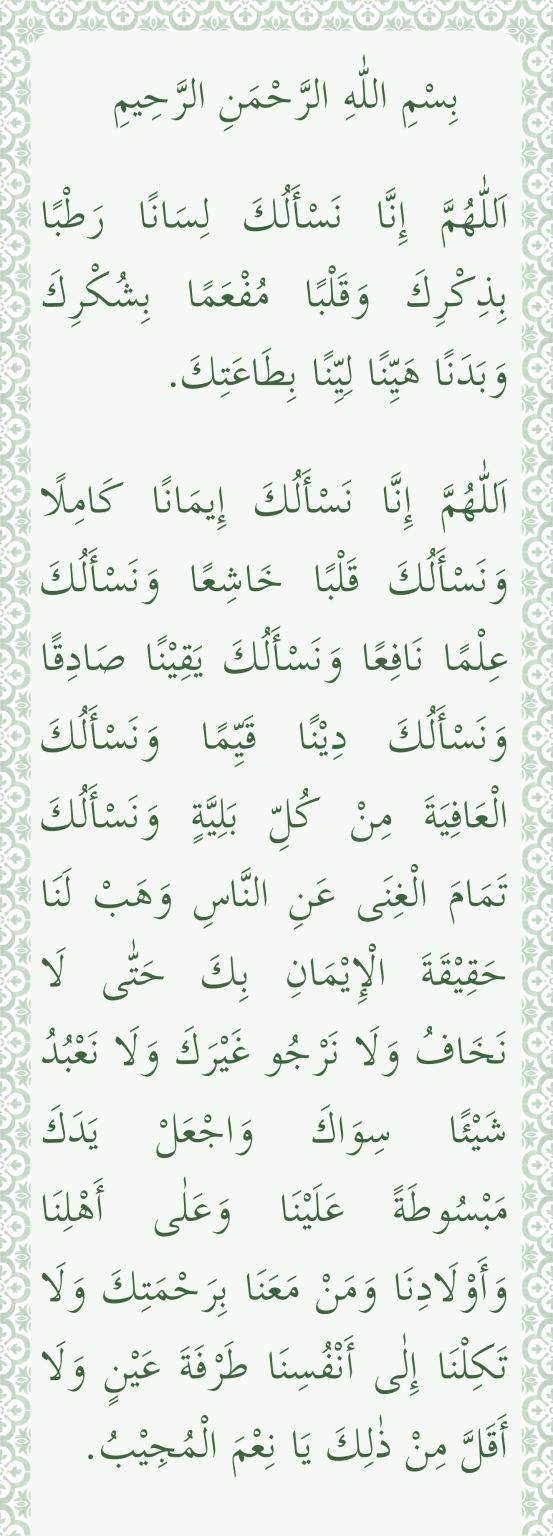 بِسْمِ اللّٰهِ الرَّحْمَنِ الرَّحِيمِ
اَللّٰهُمَّ إِنَّا نَسْأَلُكَ لِسَانًا رَطْبًا
بِذِكْرِكَ وَقَلْبًا مُفْعَمًا بِشُكْرِكَ
وَبَدَنًا هَيِّنًا لِيِّنًا بِطَاعَتِكَ.
اَللّٰهُمَّ إِنَّا نَسْأَلُكَ إِيمَانًا كَامِلًا
وَنَسْأَلُكَ قَلْبًا خَاشِعًا وَنَسْأَلُكَ
عِلْمًا نَافِعًا وَنَسْأَلُكَ يَقِيْنًا صَادِقًا
وَنَسْأَلُكَ دِيْنًا قَيِّمًا وَنَسْأَلُكَ
الْعَافِيَةَ مِنْ كُلِّ بَلِيَّةٍ وَنَسْأَلُكَ
تَمَامَ الْغِنَى عَنِ النَّاسِ وَهَبْ لَنَا
حَقِيْقَةَ الْإِيْمَانِ بِكَ حَتّٰى لَا
نَخَافُ وَلَا نَرْجُو غَيْرَكَ وَلَا نَعْبُدُ
شَيْئًا سِوَاكَ وَاجْعَلْ يَدَكَ
مَبْسُوطَةً عَلَيْنَا وَعَلٰى أَهْلِنَا
وَأَوْلَادِنَا وَمَنْ مَعَنَا بِرَحْمَتِكَ وَلَا
تَكِلْنَا إِلٰى أَنْفُسِنَا طَرْفَةَ عَيْنٍ وَلَا
أَقَلَّ مِنْ ذٰلِكَ يَا نِعْمَ الْمُجِيْبُ.